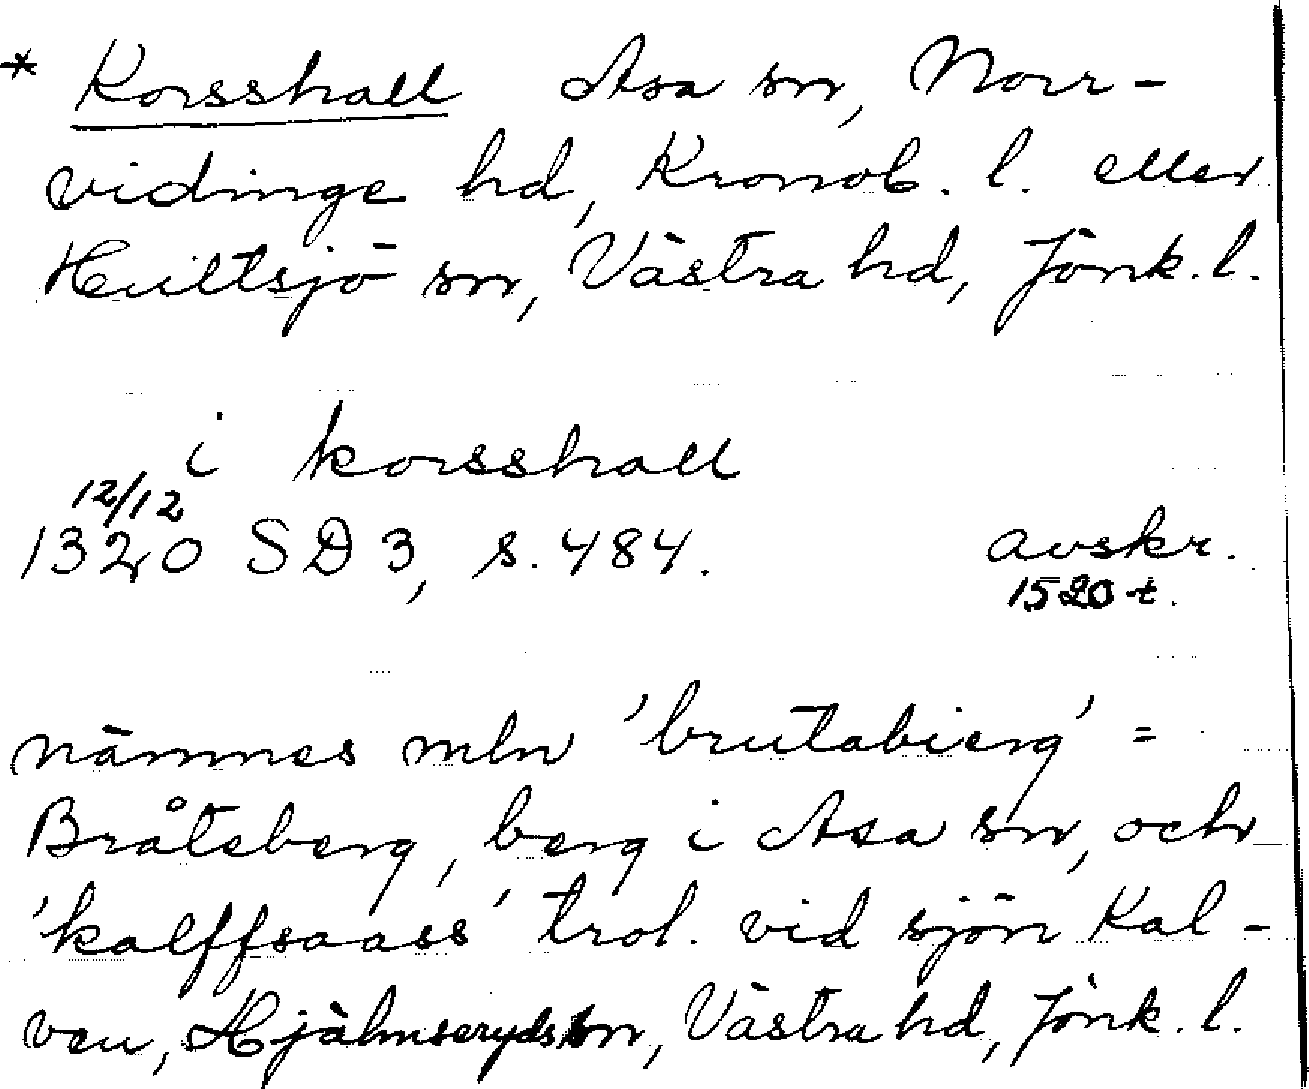 * Korsshall Asa sn, Norr-
vidinge hd, Kronob. l. eller
Hultsjö sn, Västra hd, Jönk. l.
i korsshall
12/12
1320 SD 3, s. 484. avskr.
1520-t.
nämnes mln 'brutabierg' =
Bråteberg, berg i Asa sn, och
'kalffsaass' trol. vid sjön Kal-
ven, Hjälmseryds sn, Västra hd, Jönk. l.